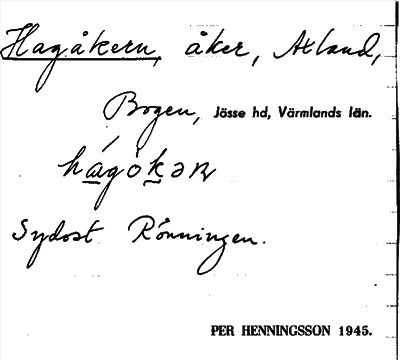 Hagåkern, åker, Atland,
Bogen, Jösse hd, Värmlands län.
hægòkəɳ
Sydost Rönningen.
PER HENNINGSSON 1945.